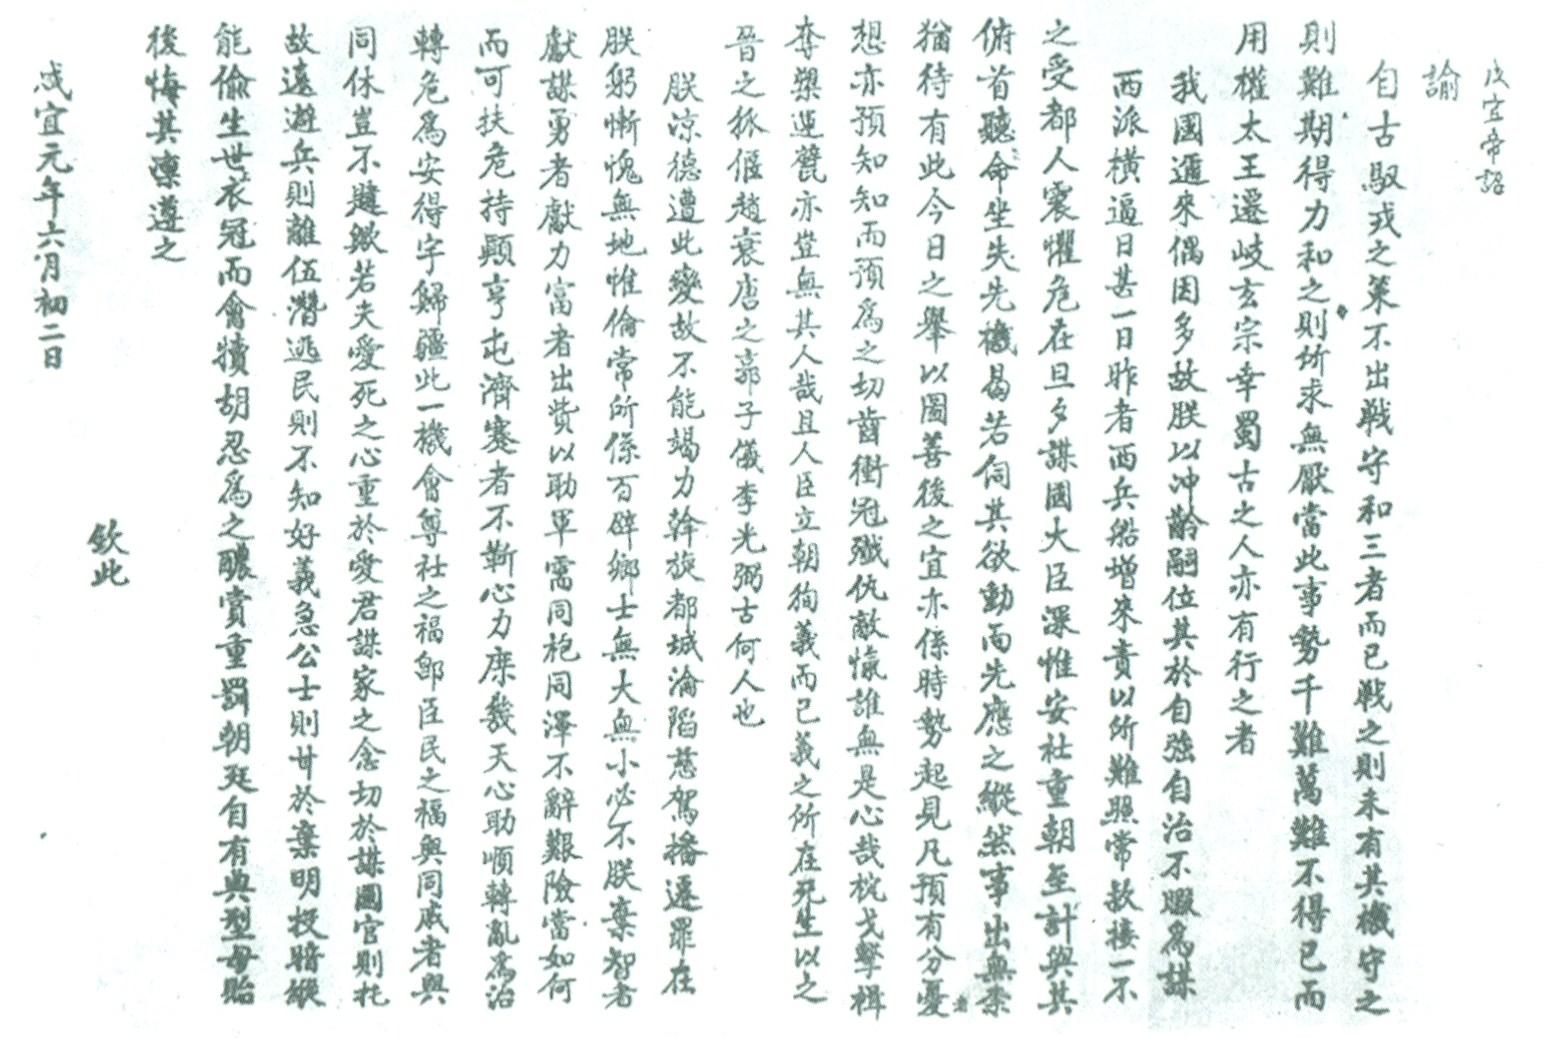 咸宜帝詔
諭
自古馭戎之策不出戰守和三者而已戰之則未有其機守之
則難期得力和之則所求無厭當此事勢千難萬難不得已而
用權太王遷岐玄宗幸蜀古之人亦有行之者
我國邇來偶因多故朕以冲齡嗣位其於自強自治不暇爲謀
西派橫逼日甚一日昨者西兵船增來責以所難照常款接一不
之受都人震懼危在旦夕謀國大臣深惟安社重朝至計與其
俯首聽命坐失先機曷若伺其欲動而先應之縱然事出無柰
猶待有此今日之舉以圖善後之宜亦係時勢起見凡預有分憂者
想亦預知知而預爲之切齒衝冠殲仇敵愾誰無是心哉枕戈擊楫
奪槊運甓亦豈無其人哉且人臣立朝徇義而已義之所在死生以之
晉之狐偃趙衰唐之郭子儀李光弼古何人也
朕凉德遭此變故不能竭力幹旋都城淪陷慈駕播遷罪在
朕躬慚愧無地惟倫常所係百辟鄉士無大無小必不朕棄智者
獻謀勇者獻力富者出貲以助軍需同袍同澤不辭艱險當如何
而可扶危持顚亨屯濟蹇者不靳心力庶幾天心助順轉亂爲治
轉危爲安得宇歸疆此一機會尊社之福郎臣民之福與同戚者與
同休豈不韙歟若夫愛死之心重於愛君謀家之念切於謀國官則托
故遠避兵則離伍潛逃民則不知好義急公士則甘於棄明投暗縱
能偷生世衣冠而會犢胡忍爲之醲賞重罰朝廷自有典型毋貽
後悔其凛遵之
欽此
咸宜元年六月初二日